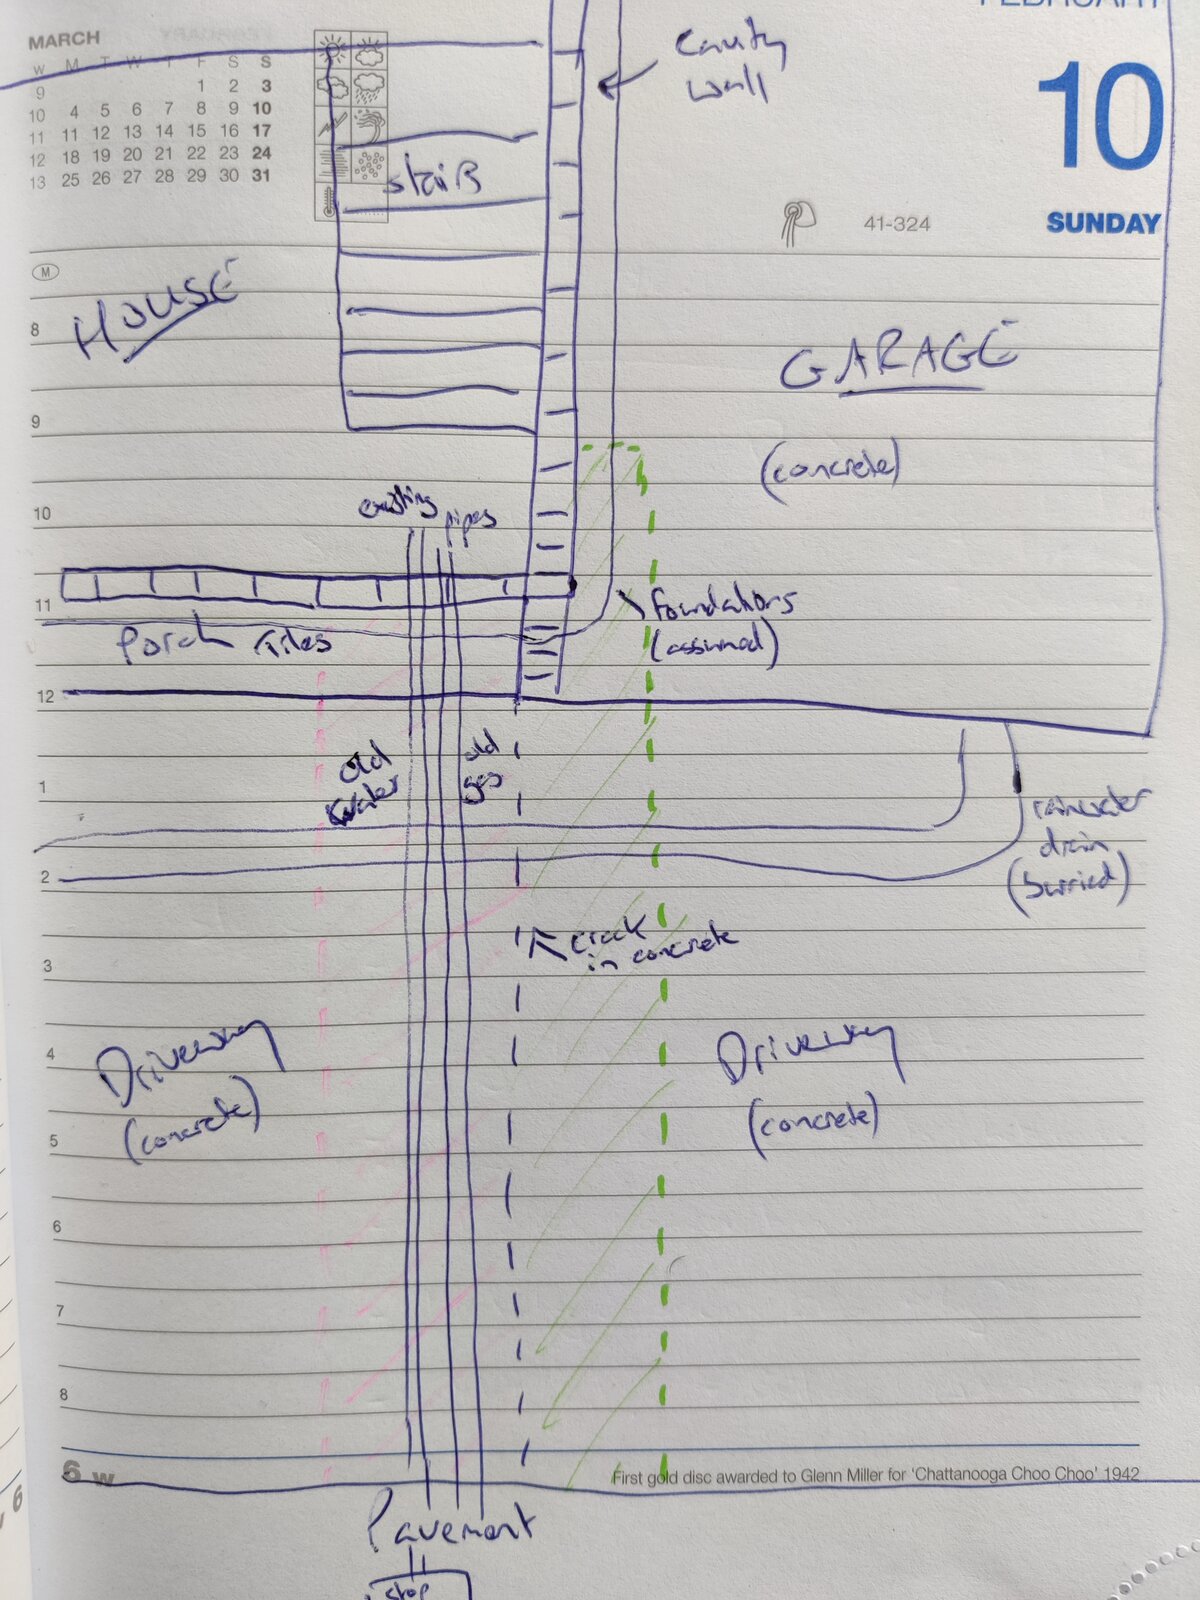 FEBRUARY
MARCH
W M T W T F S S
9 1 2 3
10 4 5 6 7 8 9 10
11 11 12 13 14 15 16 17
12 18 19 20 21 22 23 24
13 25 26 27 28 29 30 31
10
41-324
SUNDAY
cavity
wall
stairs
M
HOUSE
8
GARAGE
9
(concrete)
existing
pipes
10
11
foundations
(assumed)
Porch Tiles
12
old
water
old
gas
1
rainwater
drain
(burried)
2
crack
in concrete
3
Driveway
(concrete)
4
Driveway
(concrete)
5
6
7
8
6 W
First gold disc awarded to Glenn Miller for 'Chattanooga Choo Choo' 1942
6
Pavement
stop